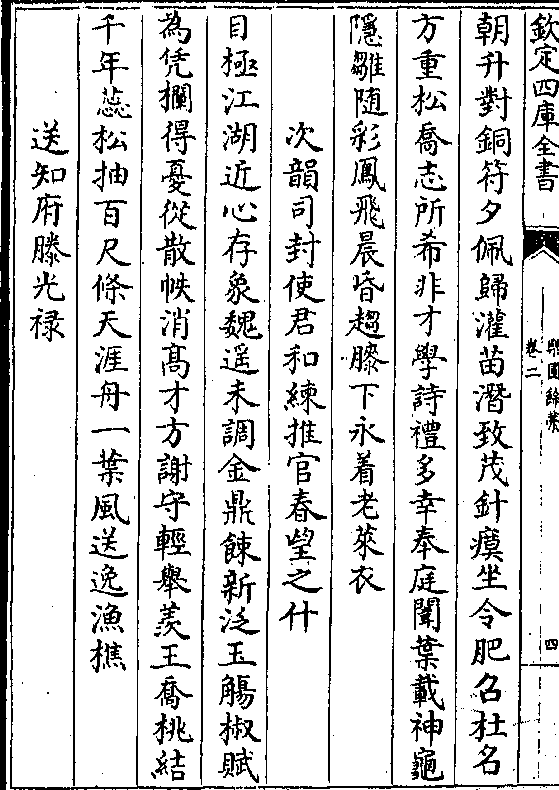 欽定四庫全書
卷二
四
朝升對銅符夕佩歸灌苗潛致茂針瘼坐令肥召杜名
方重松喬志所希非才學詩禮多幸奉庭闈葉載神龜
隱雛隨彩鳳飛晨昏趨膝下永着老萊衣
次韻司封使君和練推官春望之什
目極江湖近心存象魏遥未調金鼎餗新泛玉觴椒賦
為凭欄得憂從散帙消髙才方謝守輕舉羨王喬桃結
千年蕊松抽百尺條天涯舟一葉風送逸漁樵
送知府滕光禄